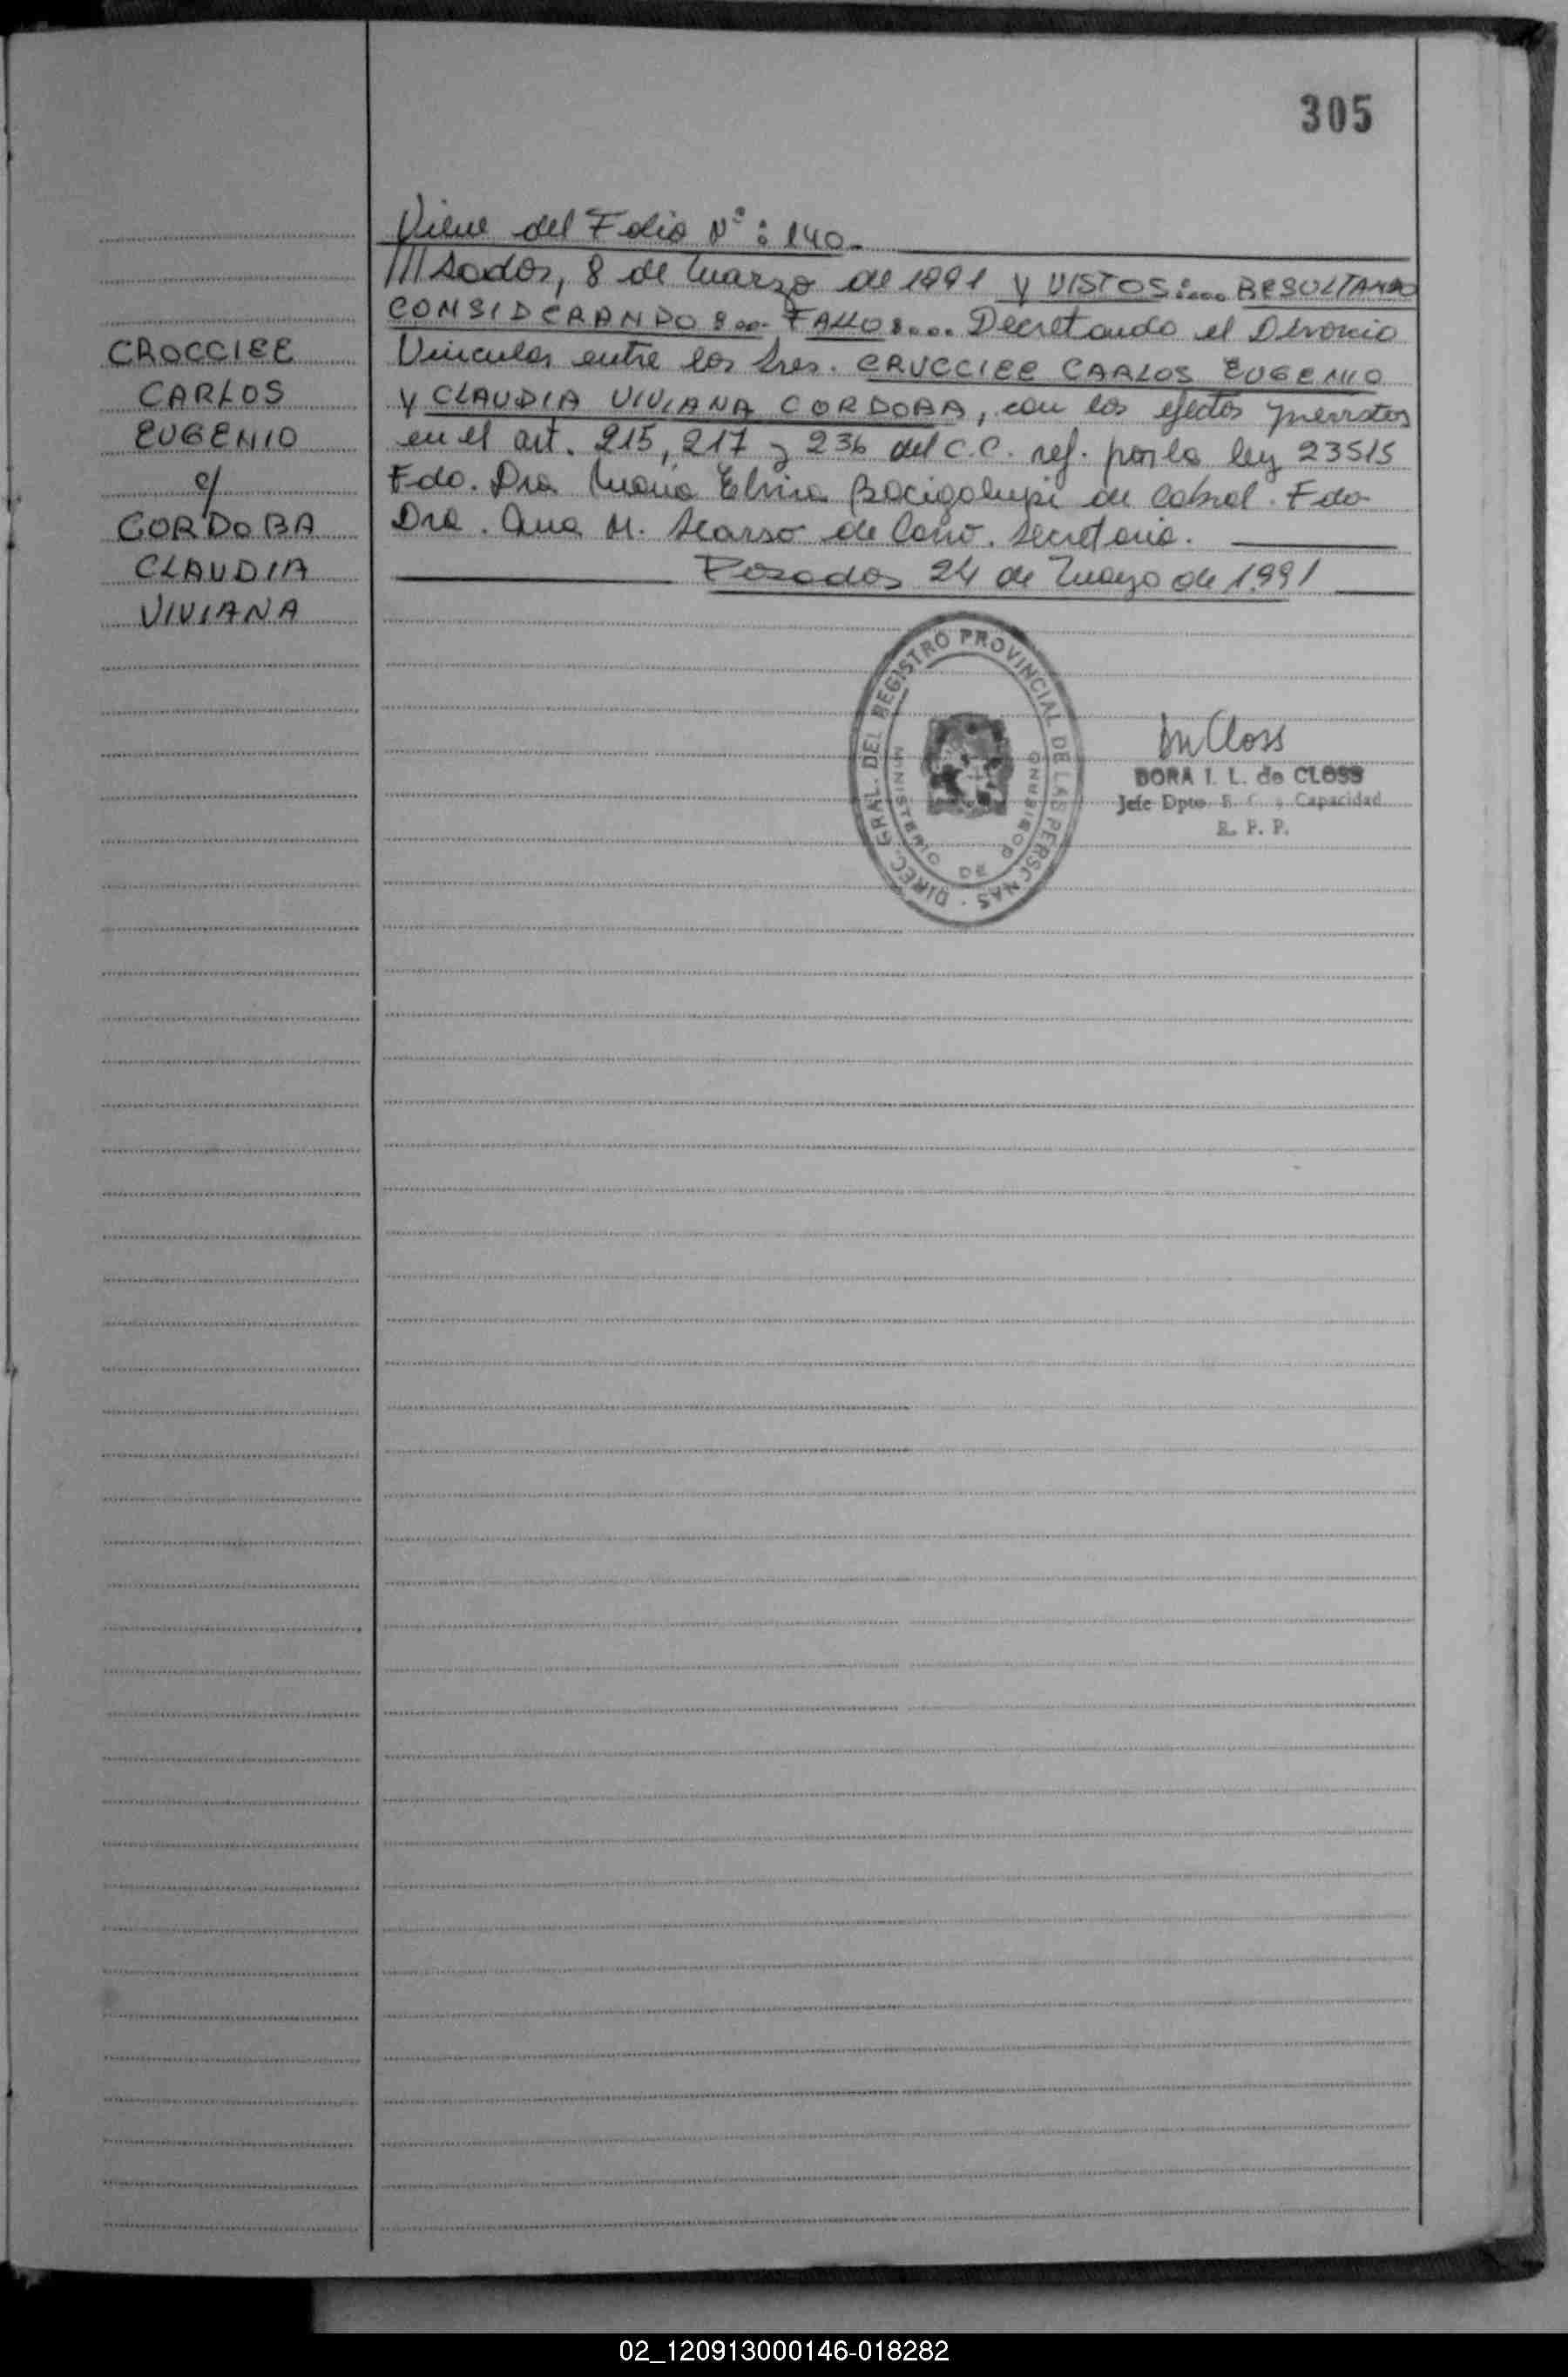 305
Viene del Folio N°: 140.
///sadas, 8 de Marzo de 1991 Y VISTOS:... RESULTANDO
CONSIDERANDO:... FALLO:... Decretando el Divorcio
CROCCIEE
Vincular entre los Sres. CRUCCIEE CARLOS EUGENIO
CARLOS
Y CLAUDIA VIVIANA CORDOBA, con los efectos previstos
EUGENIO
en el art. 215, 217 y 236 del C.C. ref. por la ley 23515
c/
Fdo. Dra Maria Elvira Bacigalupi de Cabral. Fdo
CORDOBA
Dra. Ana M. de Secretaria.
CLAUDIA
Posadas 24 de Mayo de 1991
VIVIANA
DIREC. GRAL. DEL REGISTRO PROVINCIAL DE LAS PERSONAS
MINISTERIO DE GOBIERNO
DORA I. L. de CLOSS
Jefe Dpto. E. C. y Capacidad
R. P. P.
02_120913000146-018282